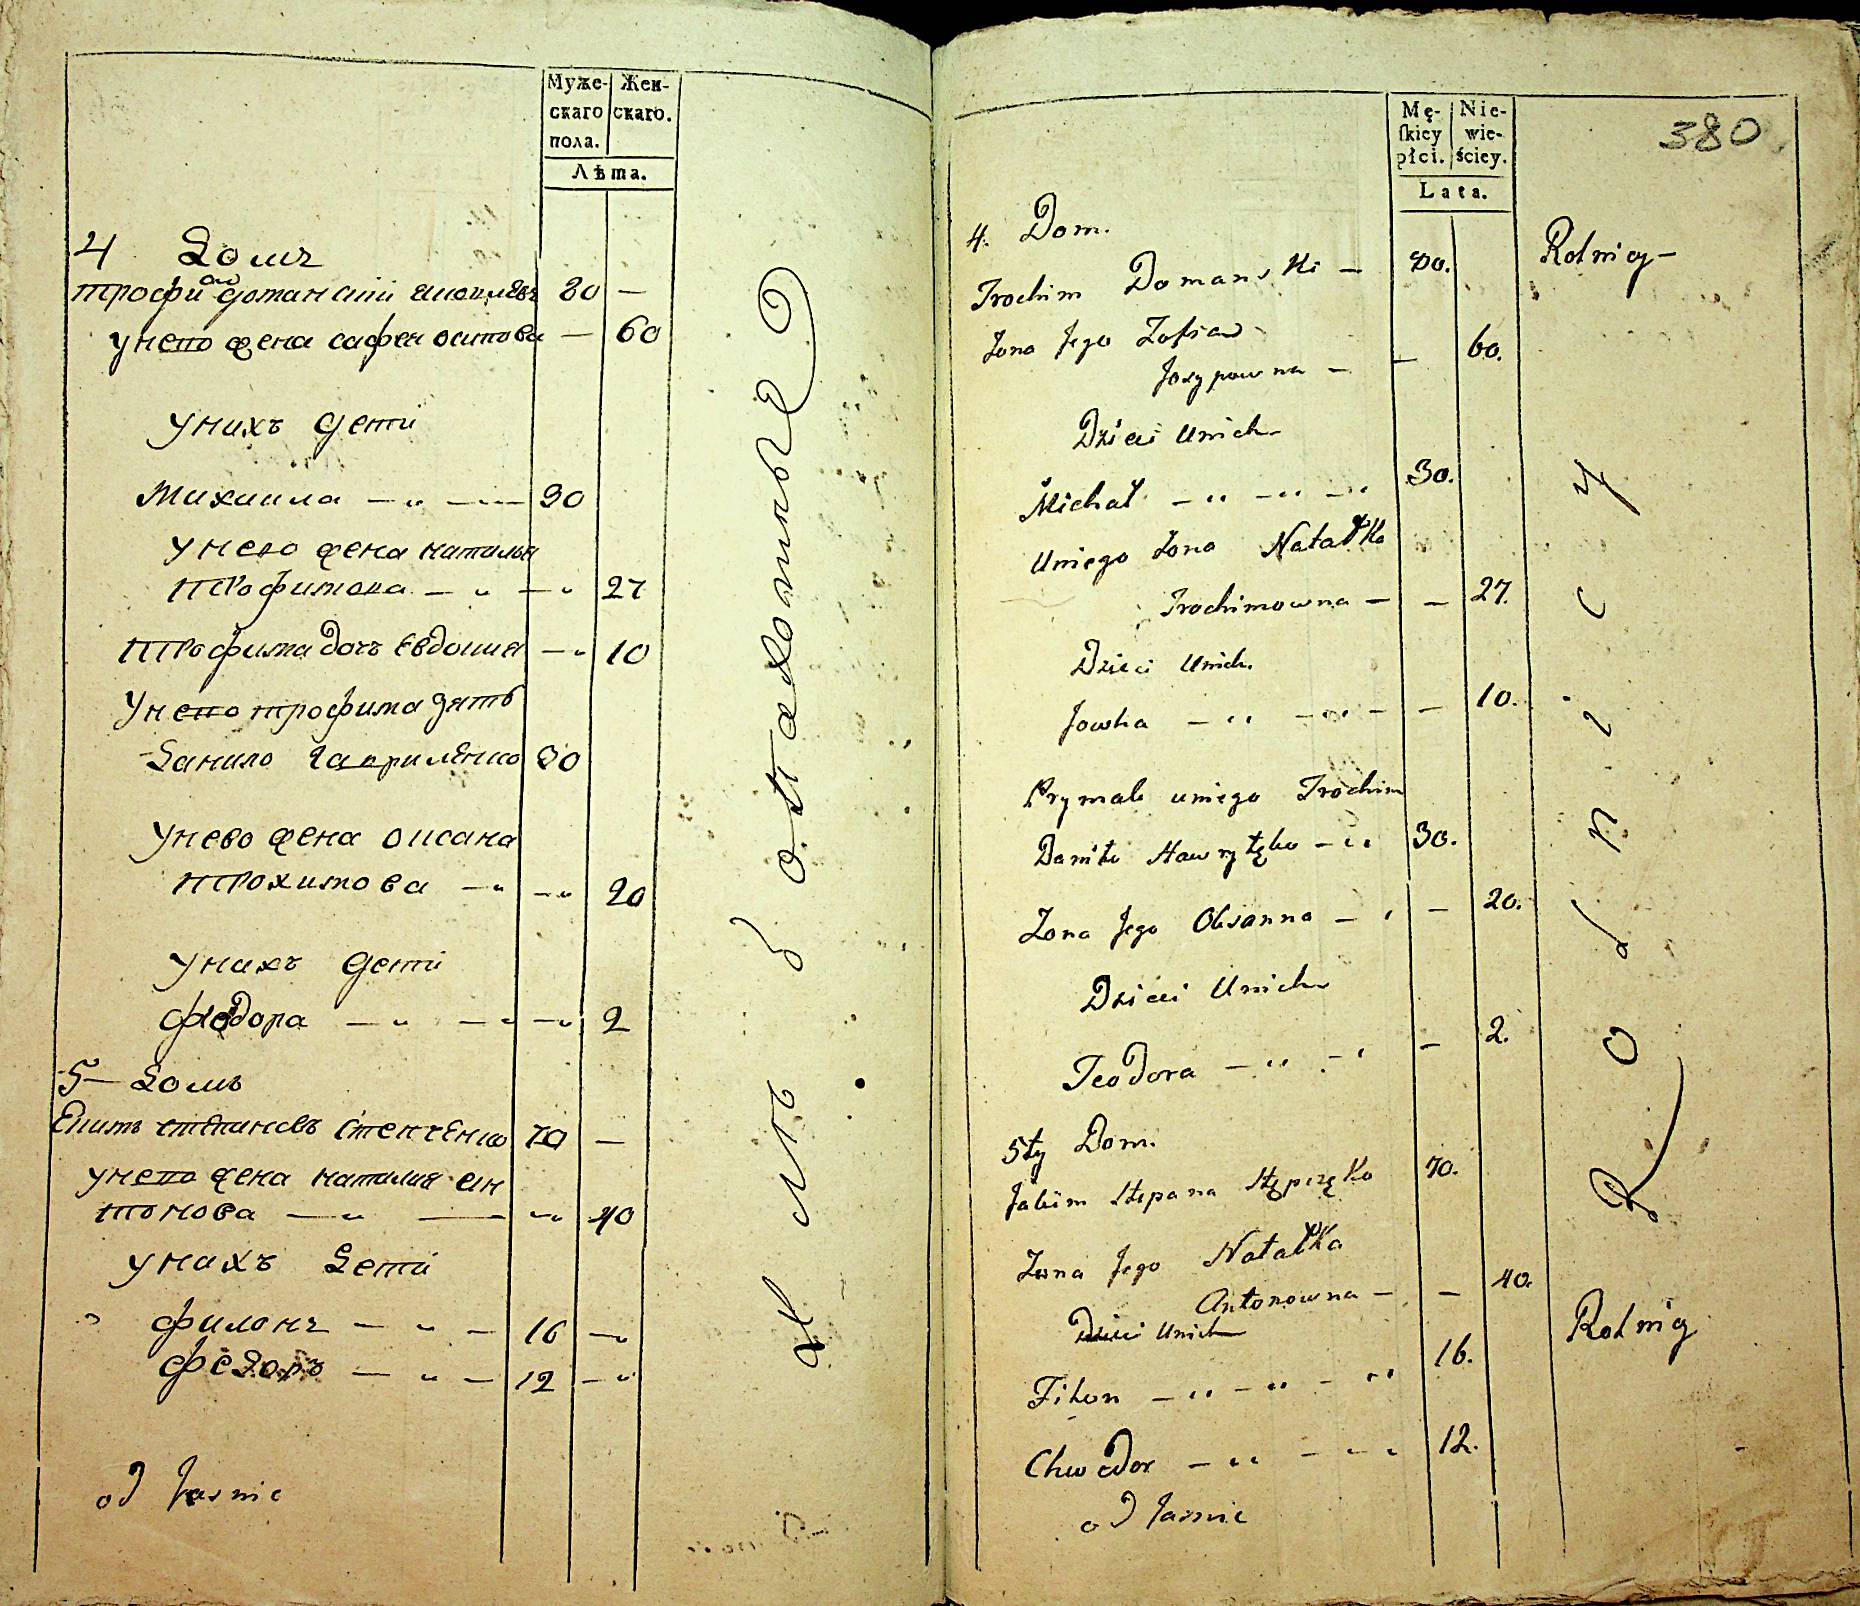 Муже-
скаго
пола.
Жен-
скаго.
Лѣта.
4 Домъ
трофи домански 80 —
унего жена софея осипова — 60
унихъ дети
Михаила — „ — 30
унего жена наталья
трофимова — „ — „ 27
трофима дочь Евдокия — „ 10
Унего трофима зять
Данило гавриленко 30
Унего жена оксана
трохимова — „ — „ 20
унихъ дети
Феодора — „ — „ — „ 2
5 — Домъ
Екимъ степановъ степченко 70 —
унего жена наталия ан
тонова — „ — — „ 40
унихъ Дети
филонъ — „ — 16 — „
Федоръ — „ — 12 — „
od Jasnie
хлебопахотные
Mę-
ſkiey
płci.
Nie-
wie-
ściey.
Lata.
380
4. Dom.
Trochim Domanski — 80.
Rolnicy —
Żona Jego Zofia
Josypowna — — 60.
Dzieci Unich
Michał — „ — „ — „ 30.
Uniego Żona Natałka
Trochimowna — — 27.
Dzieci Unich.
Jowha — „ — „ — — 10.
Prymak uniego Trochim
Daniło Hawryłęko — „ 30.
Żona Jego Oksanna — „ — 20.
Dzieci Unich
Teodora — „ — „ — 2.
5ty Dom.
Jakim Stepana Stępczęko 70.
Żona Jego Natałka
Antonowna — — 40.
Dzieci Unich
Rolnicy
Filon — „ — „ — „ 16.
Chwedor — „ — „ 12.
od Jasnie
Rolnicy